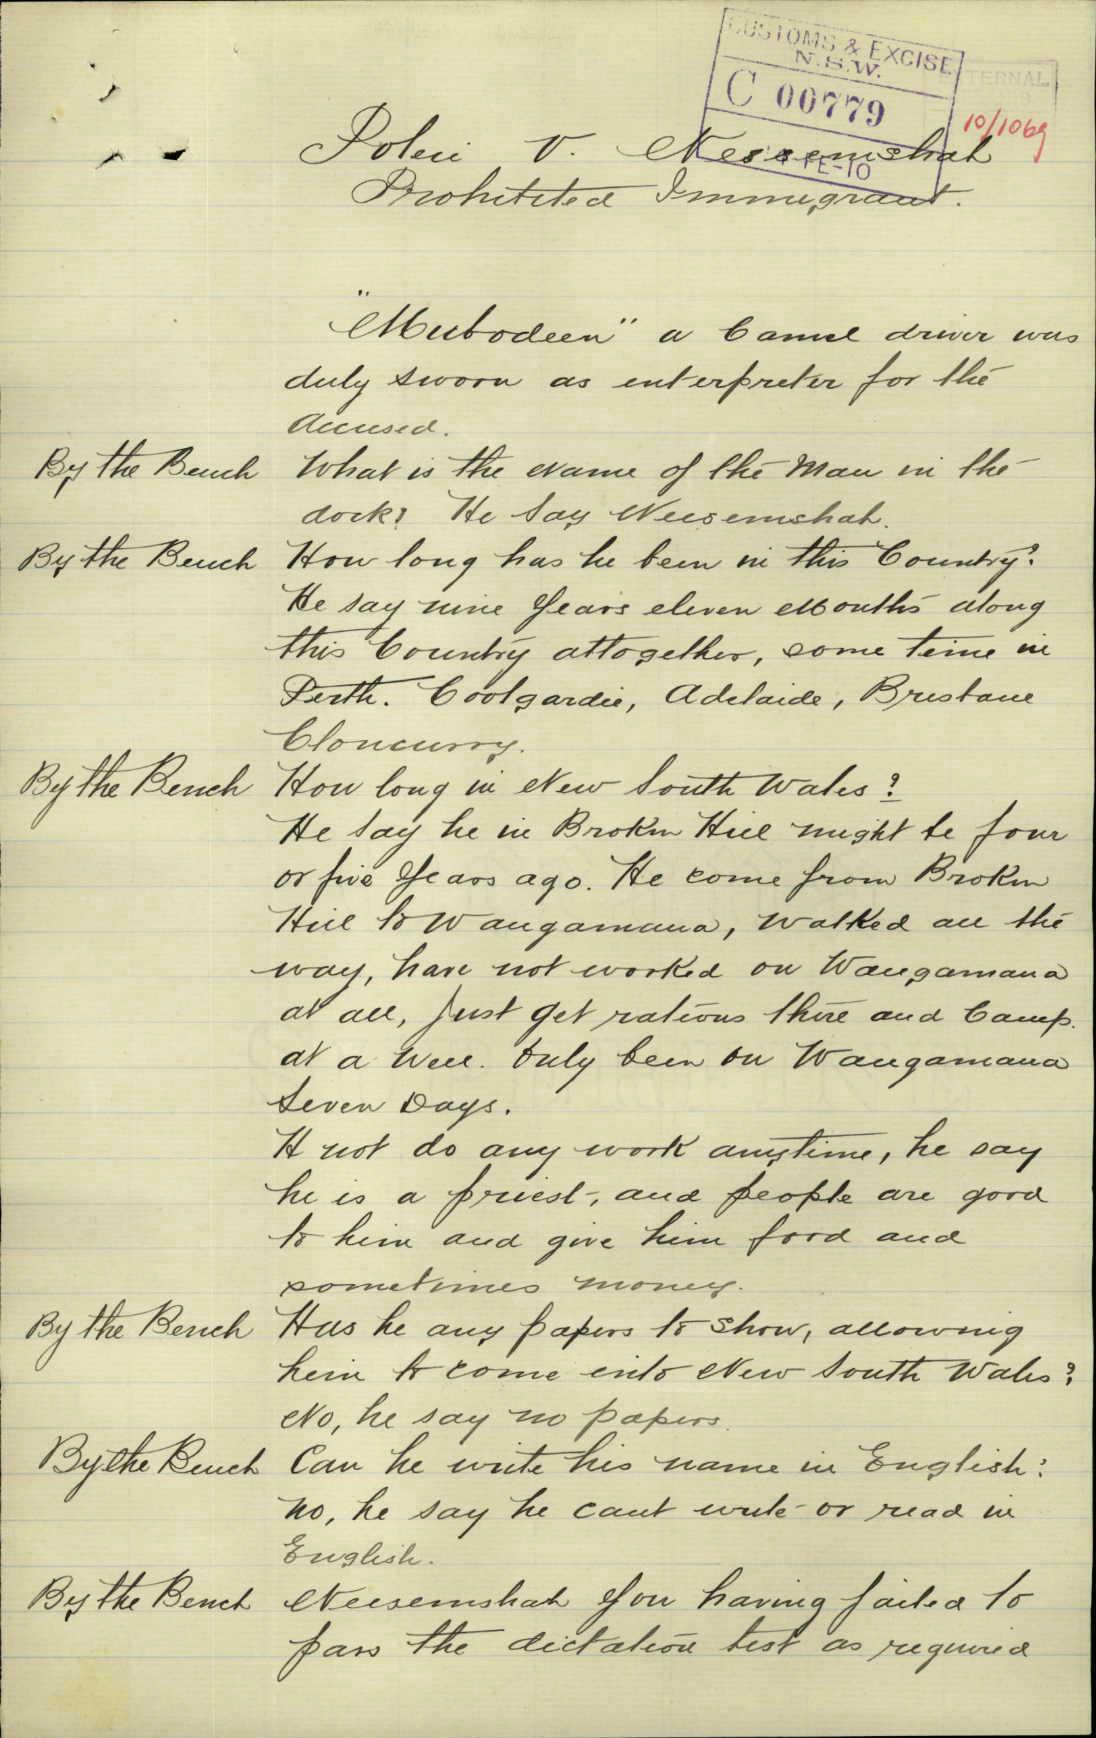 CUSTOMS & EXCISE
N.S.W.
C 00779
FE-10
TERNAL
10/1069
Police V. Neesemshah
Prohibited Immigrant.
"Mubodeen" a Camel driver was
duly sworn as interpreter for the
Accused.
By the Bench What is the Name of the Man in the
dock? He Say Neesemshah.
By the Bench How long has he been in this Country?
He say nine Years eleven Months along
this Country attogether, some time in
Perth. Coolgardie, Adelaide, Brisbane
Cloncurry.
By the Bench How long in New South Wales?
He Say he in Broken Hill might be four
or five Years ago. He come from Broken
Hill to Wangamana, Walked all the
way, have not worked on Wangamana
at all, Just get rations there and Camp.
at a Well. Only been on Wangamana
Seven Days.
H not do any work anytime, he say
he is a priest, and people are good
to him and give him food and
sometimes money.
By the Bench Has he any papers to show, allowing
him to come into New South Wales?
No, he say no papers.
By the Bench Can he write his name in English?
No, he say he cant write or read in
English.
By the Bench Neesemshah You having failed to
pass the dictation test as required